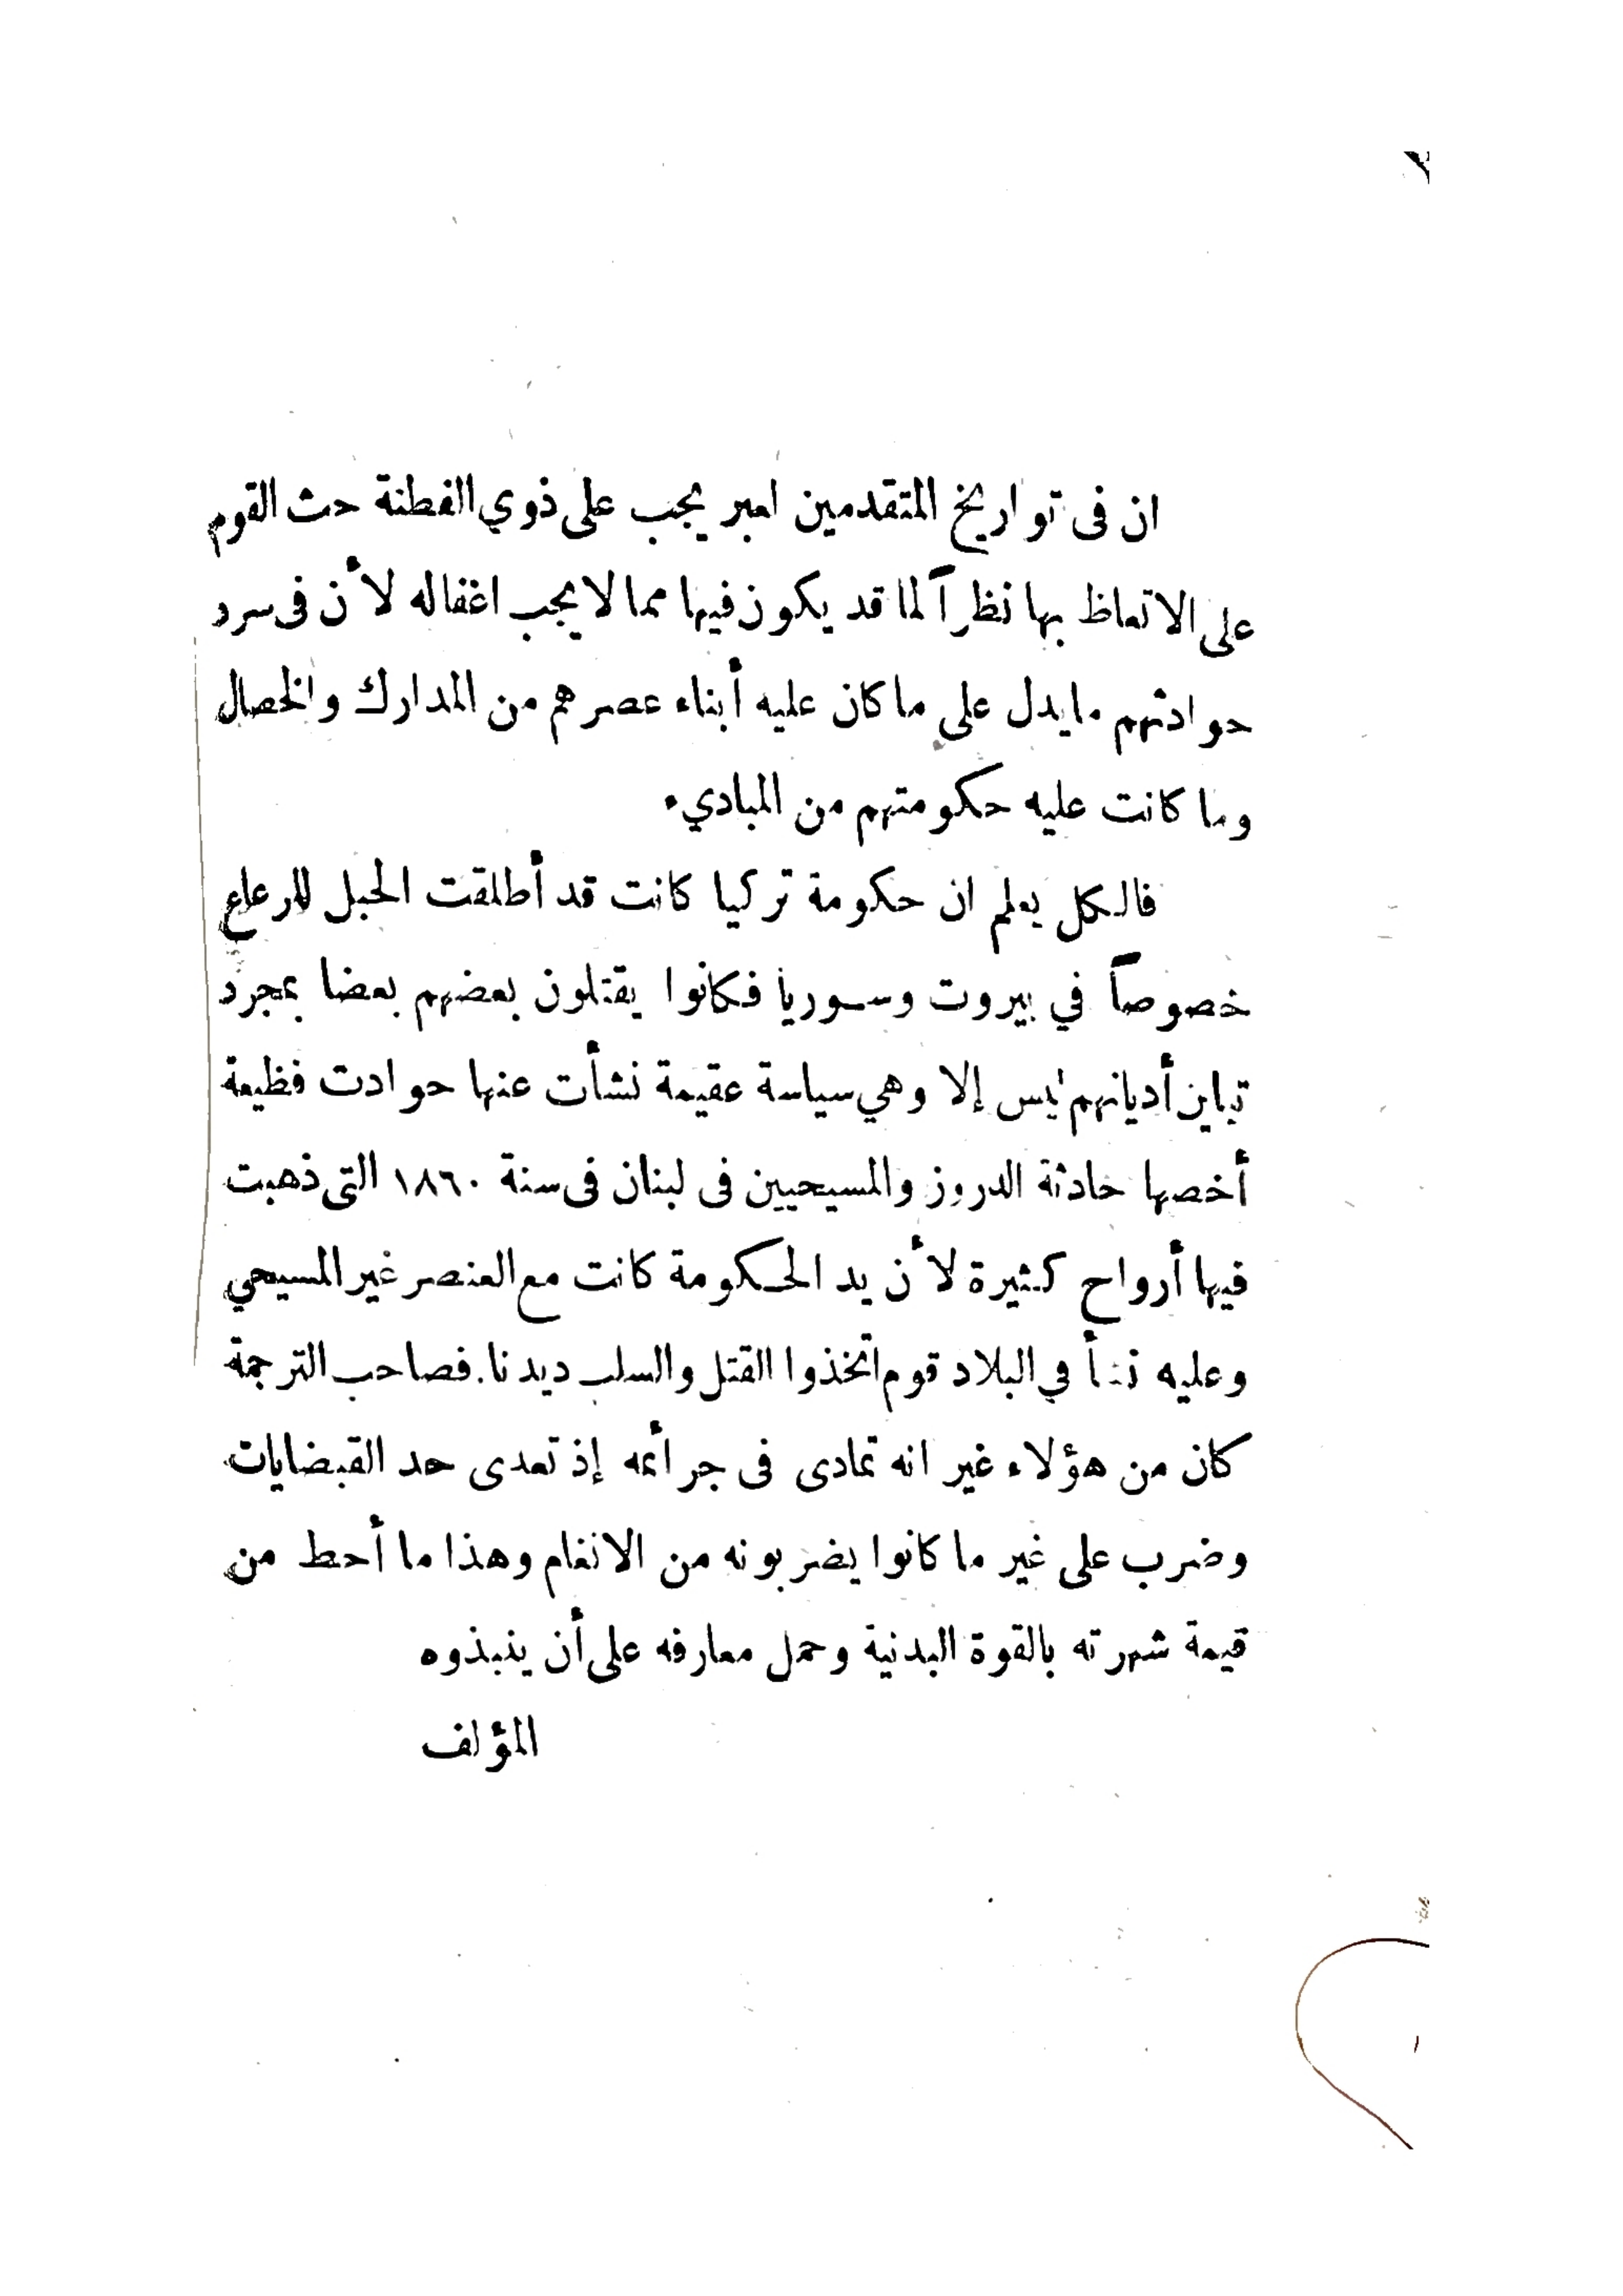 ان فى تواريخ المتقدمين لعبر يجب على ذوي الفطنة حث القوم
على الاتعاظ بها نظراً لما قد يكون فيها مما لا يجب اغفاله لأن فى سرد
حوادثهم ما يدل على ما كان عليه أبناء عصرهم من المدارك والخصال
وما كانت عليه حكومتهم من المباديء
فالكل يعلم ان حكومة تركيا كانت قد أطلقت الحبل للرعاع
خصوصاً في بيروت وسوريا فكانوا يقتلون بعضهم بعضا بمجرد
تباين أديانهم ليس إلا وهي سياسة عقيمة نشأت عنها حوادث فظيعة
أخصها حادثة الدروز والمسيحيين فى لبنان فى سنة ١٨٦٠ التى ذهبت
فيها أرواح كثيرة لأن يد الحكومة كانت مع العنصر غير المسيحي
وعليه نشأ في البلاد قوم اتخذوا القتل والسلب ديدنا. فصاحب الترجمة
كان من هؤلاء غير انه تمادى فى جرائمه إذ تعدى حد القبضايات
وضرب على غير ما كانوا يضربونه من الانغام وهذا ما أحط من
قيمة شهرته بالقوة البدنية وحمل معارفه على أن ينبذوه
المؤلف